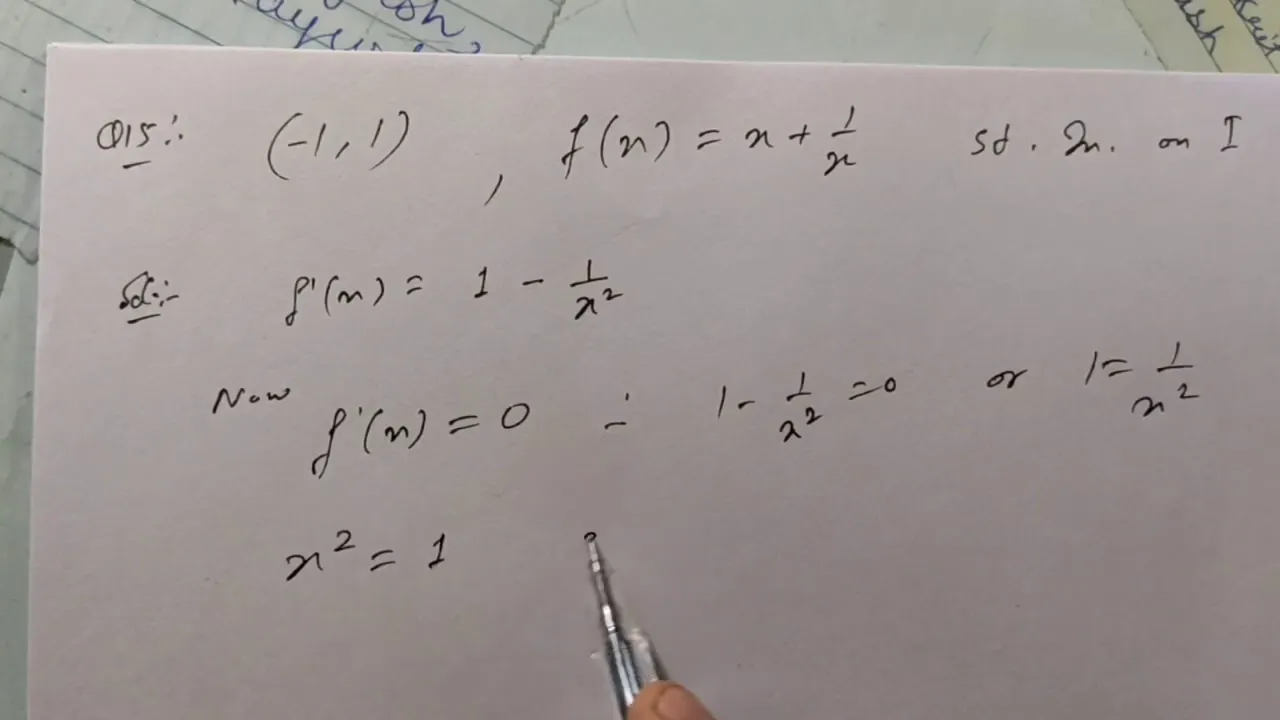 Q15:. (-1, 1) , f(x) = x + 1/x sd. In. on I
Sol:- f'(x) = 1 - 1/x²
Now f'(x) = 0 ∴ 1 - 1/x² = 0 or 1 = 1/x²
x² = 1